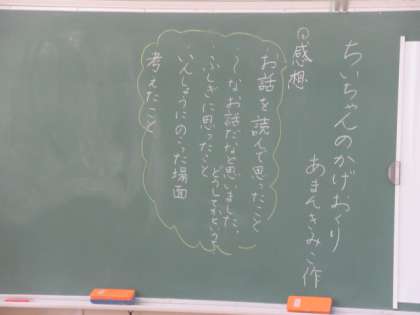 ちいちゃんのかげおくり
あまんきみこ作
感想
お話を読んで思ったこと
・〜なお話だなと思いました。
どうしてかというと
・ふしぎに思ったこと
・いんしょうにのこった場面
考えたこと